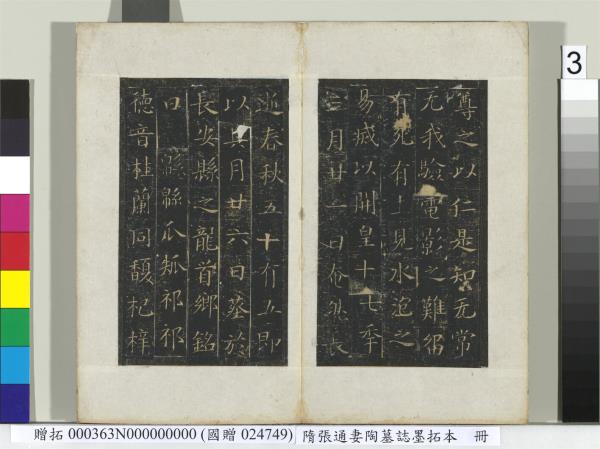 尊之以仁是知无常
无我驗電影之難留
有死有生見水泡之
易滅以開皇十七年
三月廿一日然長
逝春秋五十有五即
以其月廿六日葬於
長安縣之龍首鄉銘
曰 緜緜瓜瓞祁祁
德音桂蘭同馥杞梓
3
贈拓 000363N000000000 (國贈 024749) 隋張通妻陶墓誌墨拓本 冊